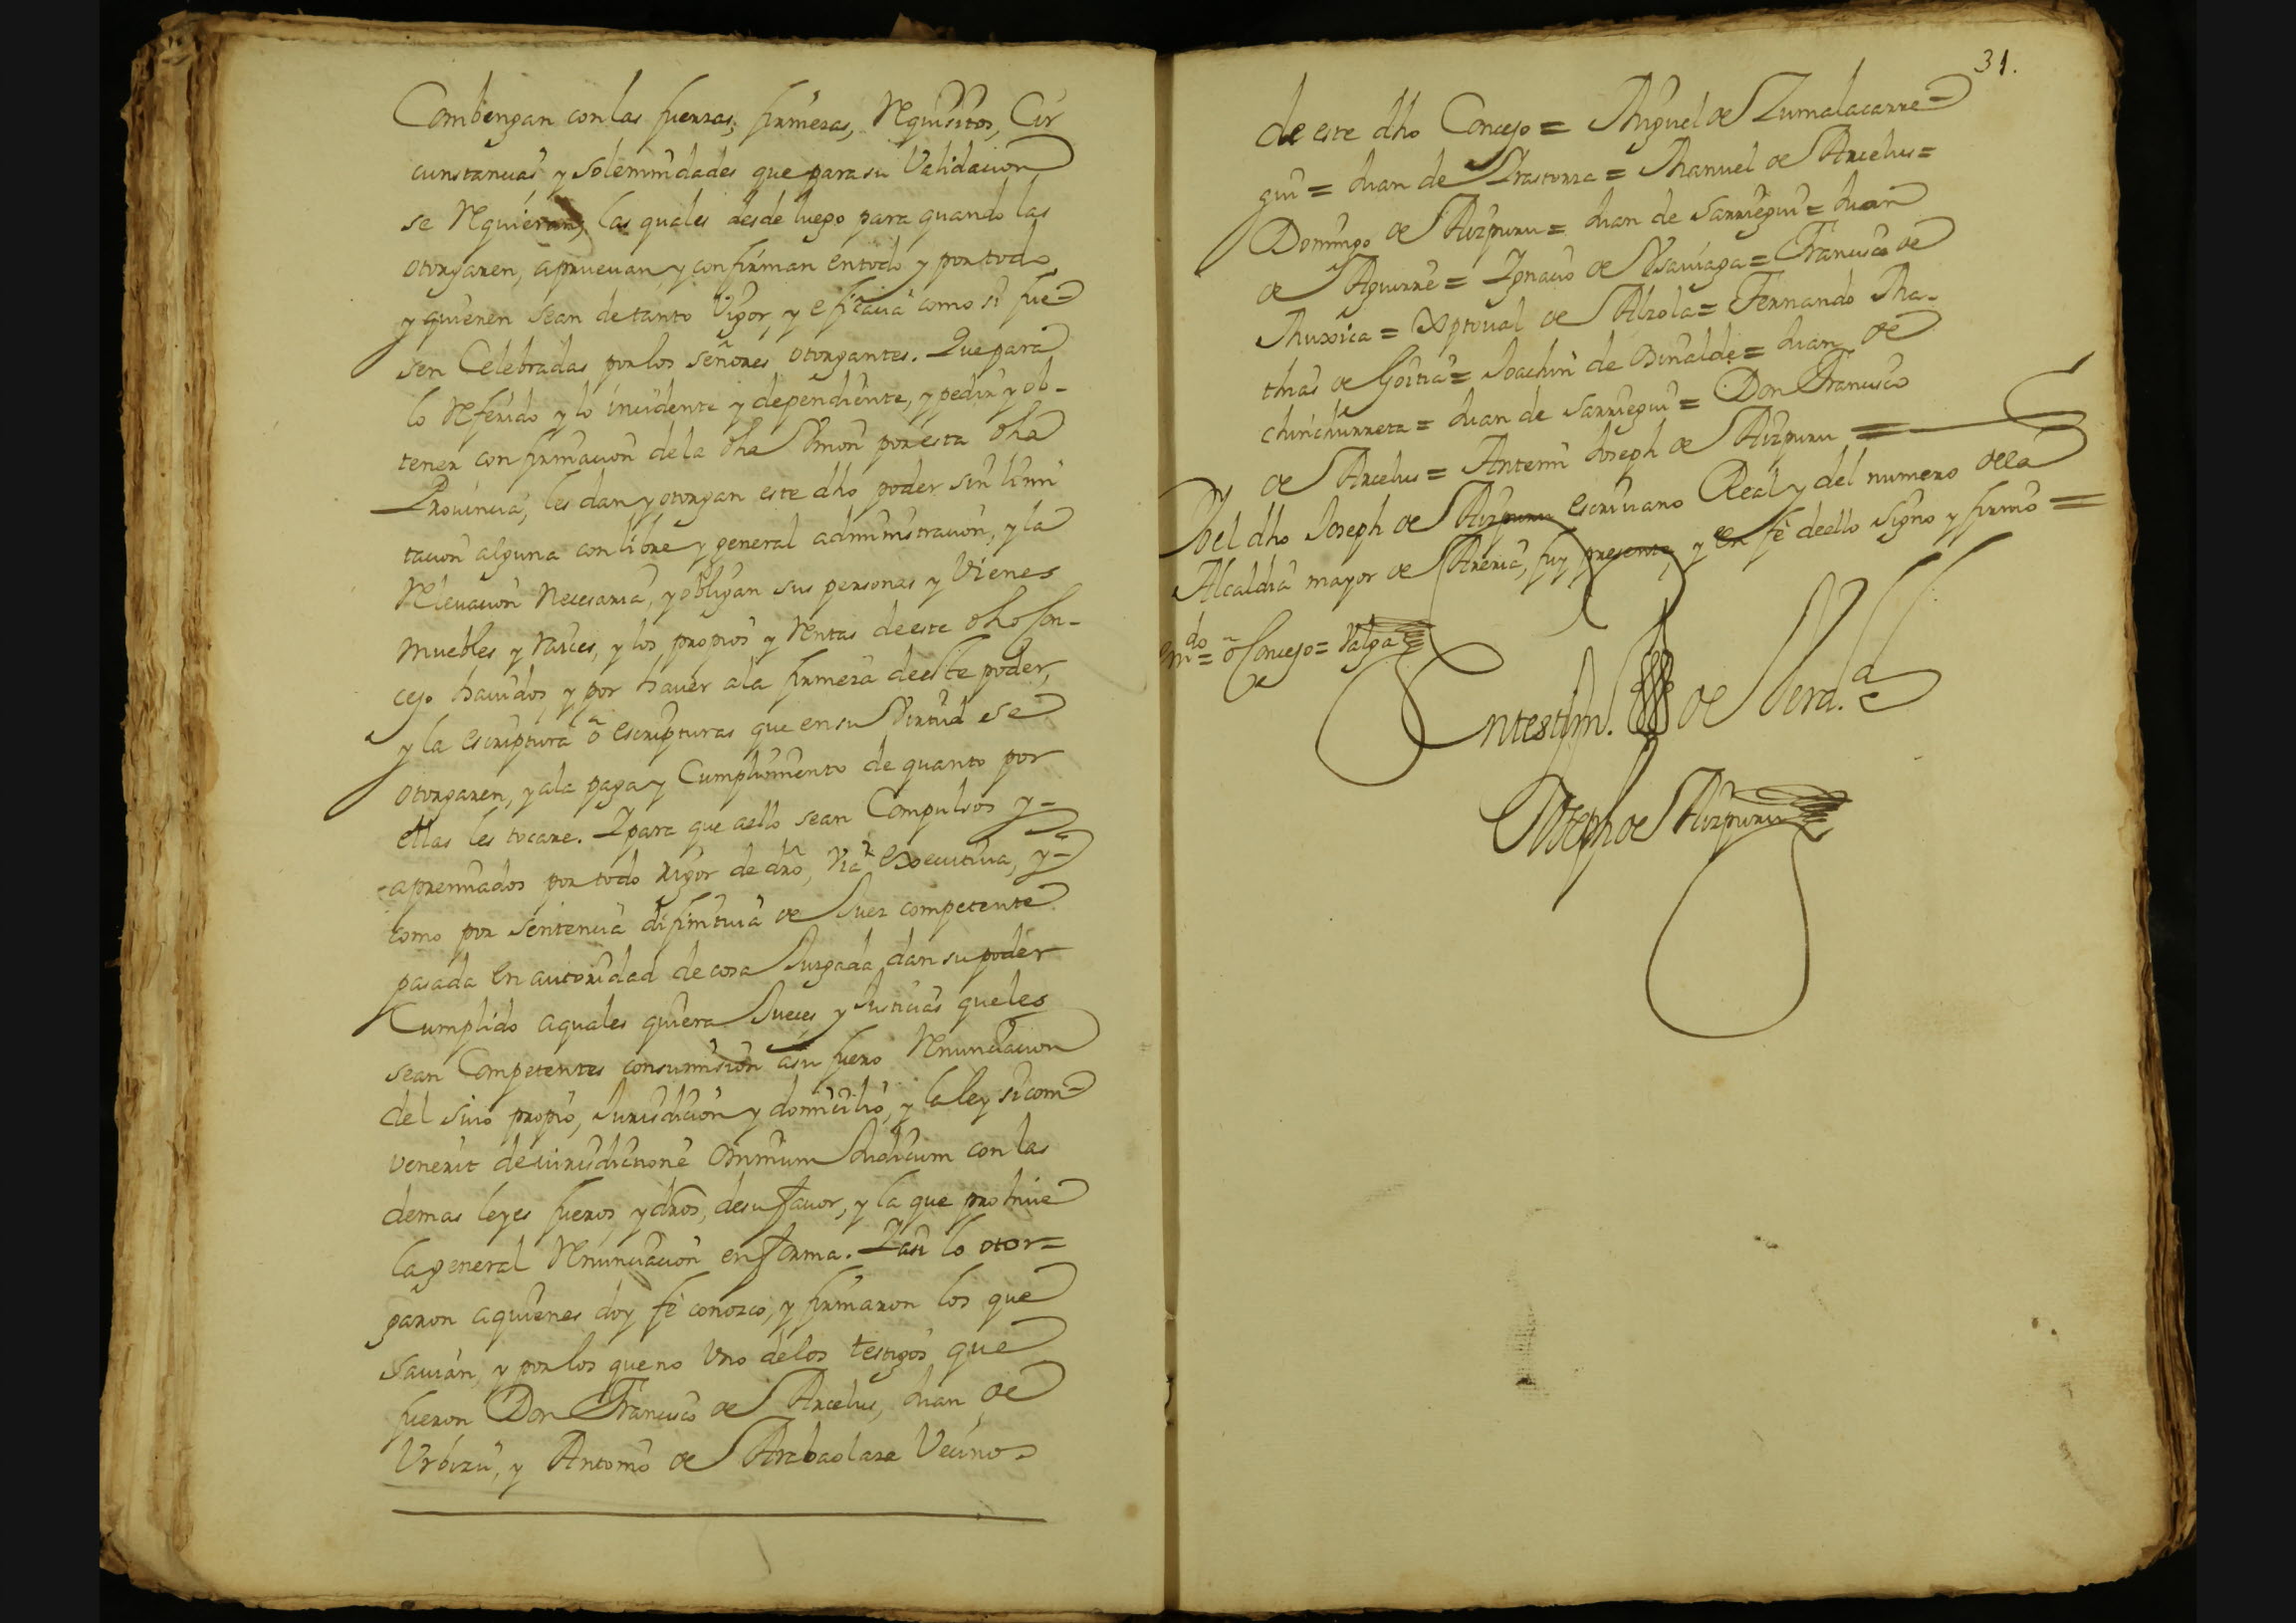 Combengan con las fuerzas, firmezas, Requisitos, Cir
cunstancias, y solemnidades que para su Validacion
se Requieran, las quales desde luego para quando las
otorgaren, apruevan, y confirman en todo y por todo,
y quieren sean de tanto Vigor, y eficacia como si fue=
sen Celebradas por los señores otorgantes. Que para
lo Referido y lo incidente y dependiente, y pedir y ob-
tener confirmacion de la dha Vnion por esta dha
Prouincia, les dan y otorgan este dho poder sin limi
tacion alguna con libre y general administracion, y la
Releuacion Necesaria, y obligan sus personas y Vienes
muebles y raices, y los propios y Rentas de este dho Con-
cejo hauidos, y por hauer a la firmeza de este poder,
y la escriptura ô escripturas que en su Virtud se
otorgaren, y a la paga y Cumplimiento de quanto por
ellas les tocare. Y para que a ello sean Compulsos y-
apremiados por todo rigor de dro, Via executiua, y-
como por sentencia difinitiua de Juez competente
pasada en autoridad de cosa Juzgada, dan su poder
Cumplido a quales quiera Jueces y Justicias que les
sean Competentes con sumision a su fuero Renunciacion
del suio propio, Jurisdicion y domicilio, y la ley si com=
venerit de iurisdictione Omnium Judicum con las
demas leyes fueros, y dros, de su fauor, y la que prohiue
la general Renunciacion en forma. Y asi lo otor=
garon a quienes doy fè conozco, y firmaron los que
sauian, y por los que no Vno de los testigos que
fueron Don Francisco de Arcelus, Juan de
Vrbizu, y Antonio de Arabaolaza Vecinos
31.
de este dho Concejo = Miguel de Zumalacarre=
gui = Juan de Yrastorza = Manuel de Arcelus =
Domingo de Aizpuru = Juan de Sarriegui = Juan
de Aguirre = Ygnacio de Vsauiaga = Francisco de
Muxica = Xptoual de Alzola = Fernando Ma-
thias de Goitia = Joachin de Oñialde = Juan de
chinchurreta = Juan de Sarriegui = Don Francisco
de Arcelus = Antemi Joseph de Aizpuru =
Yo el dho Joseph de Aizpuru escriuano Real y del numero de la
Alcaldia mayor de Areria, fuy presente, y en fè de ello signo y firmo =
Emdo = õ Concejo = Valga
En testim. de Verd.
Joseph de Aizpuru